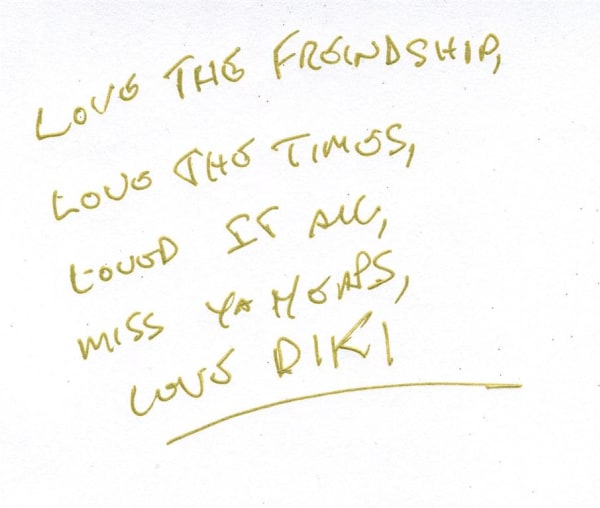 LOVE THE FREINDSHIP,
LOVE THE TIMES,
LOVED IT ALL,
MISS YA HEAPS,
LOVE DIKI